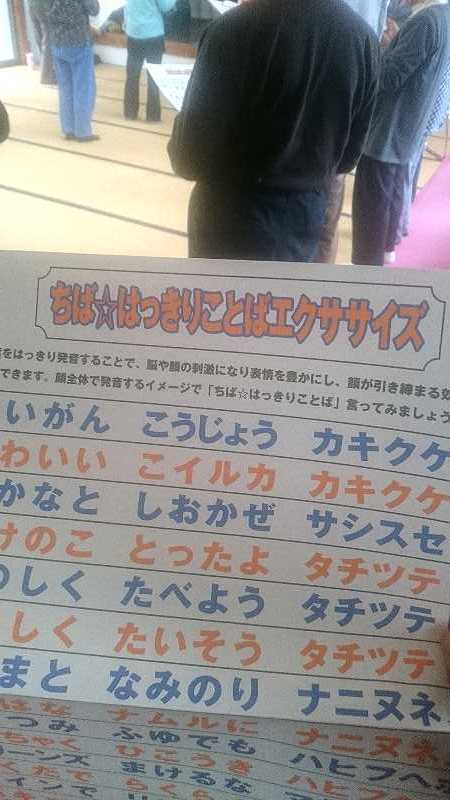 ちば☆はっきりことばエクササイズ
をはっきり発音することで、脳や顔の刺激になり表情を豊かにし、顔が引き締まる効
できます。顔全体で発音するイメージで「ちば☆はっきりことば」言ってみましょう
いがん こうじょう カキクケ
わいい こイルカ カキクケ
かなと しおかぜ サシスセ
けのこ とったよ タチツテ
のしく たべよう タチツテ
しく たいそう タチツテ
まと なみのり ナニヌネ
はな ナムルに ナニヌネ
つみ ふゆでも
ちゃく ひこうき ハヒフヘ
ーンズ まけるな